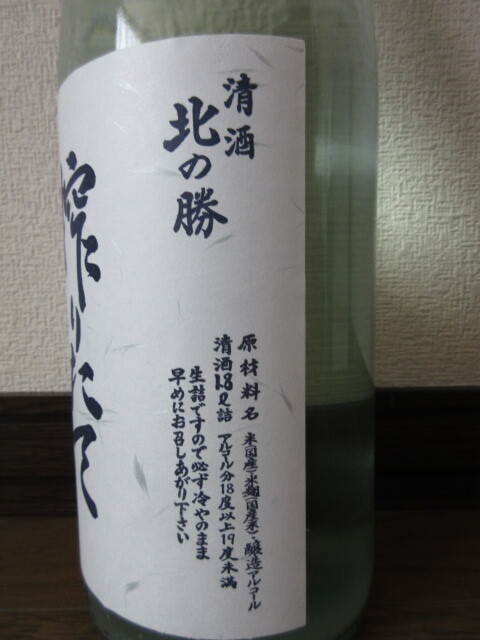 清酒
北の勝
搾りたて
原材料名 米(国産)・米麹(国産米)・醸造アルコール
清酒1.8ℓ詰 アルコール分18度以上19度未満
生詰ですので必ず冷やのまま
早めにお召しあがり下さい